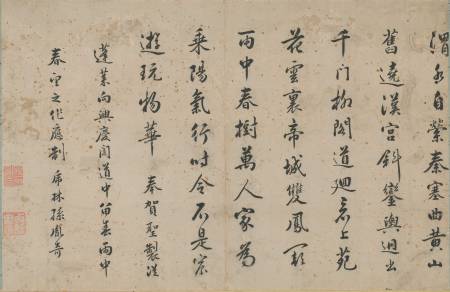 渭水自縈秦塞曲黃山
舊遶漢宮斜鑾輿迥出
千门柳閣道迴看上苑
花雲裏帝城雙鳳闕
雨中春樹萬人家為
乘陽氣行时令不是宸
遊玩物華 奉賀聖製從
蓬萊向興慶閣道中留春雨中
春望之作應制 虎林孫鳳奇